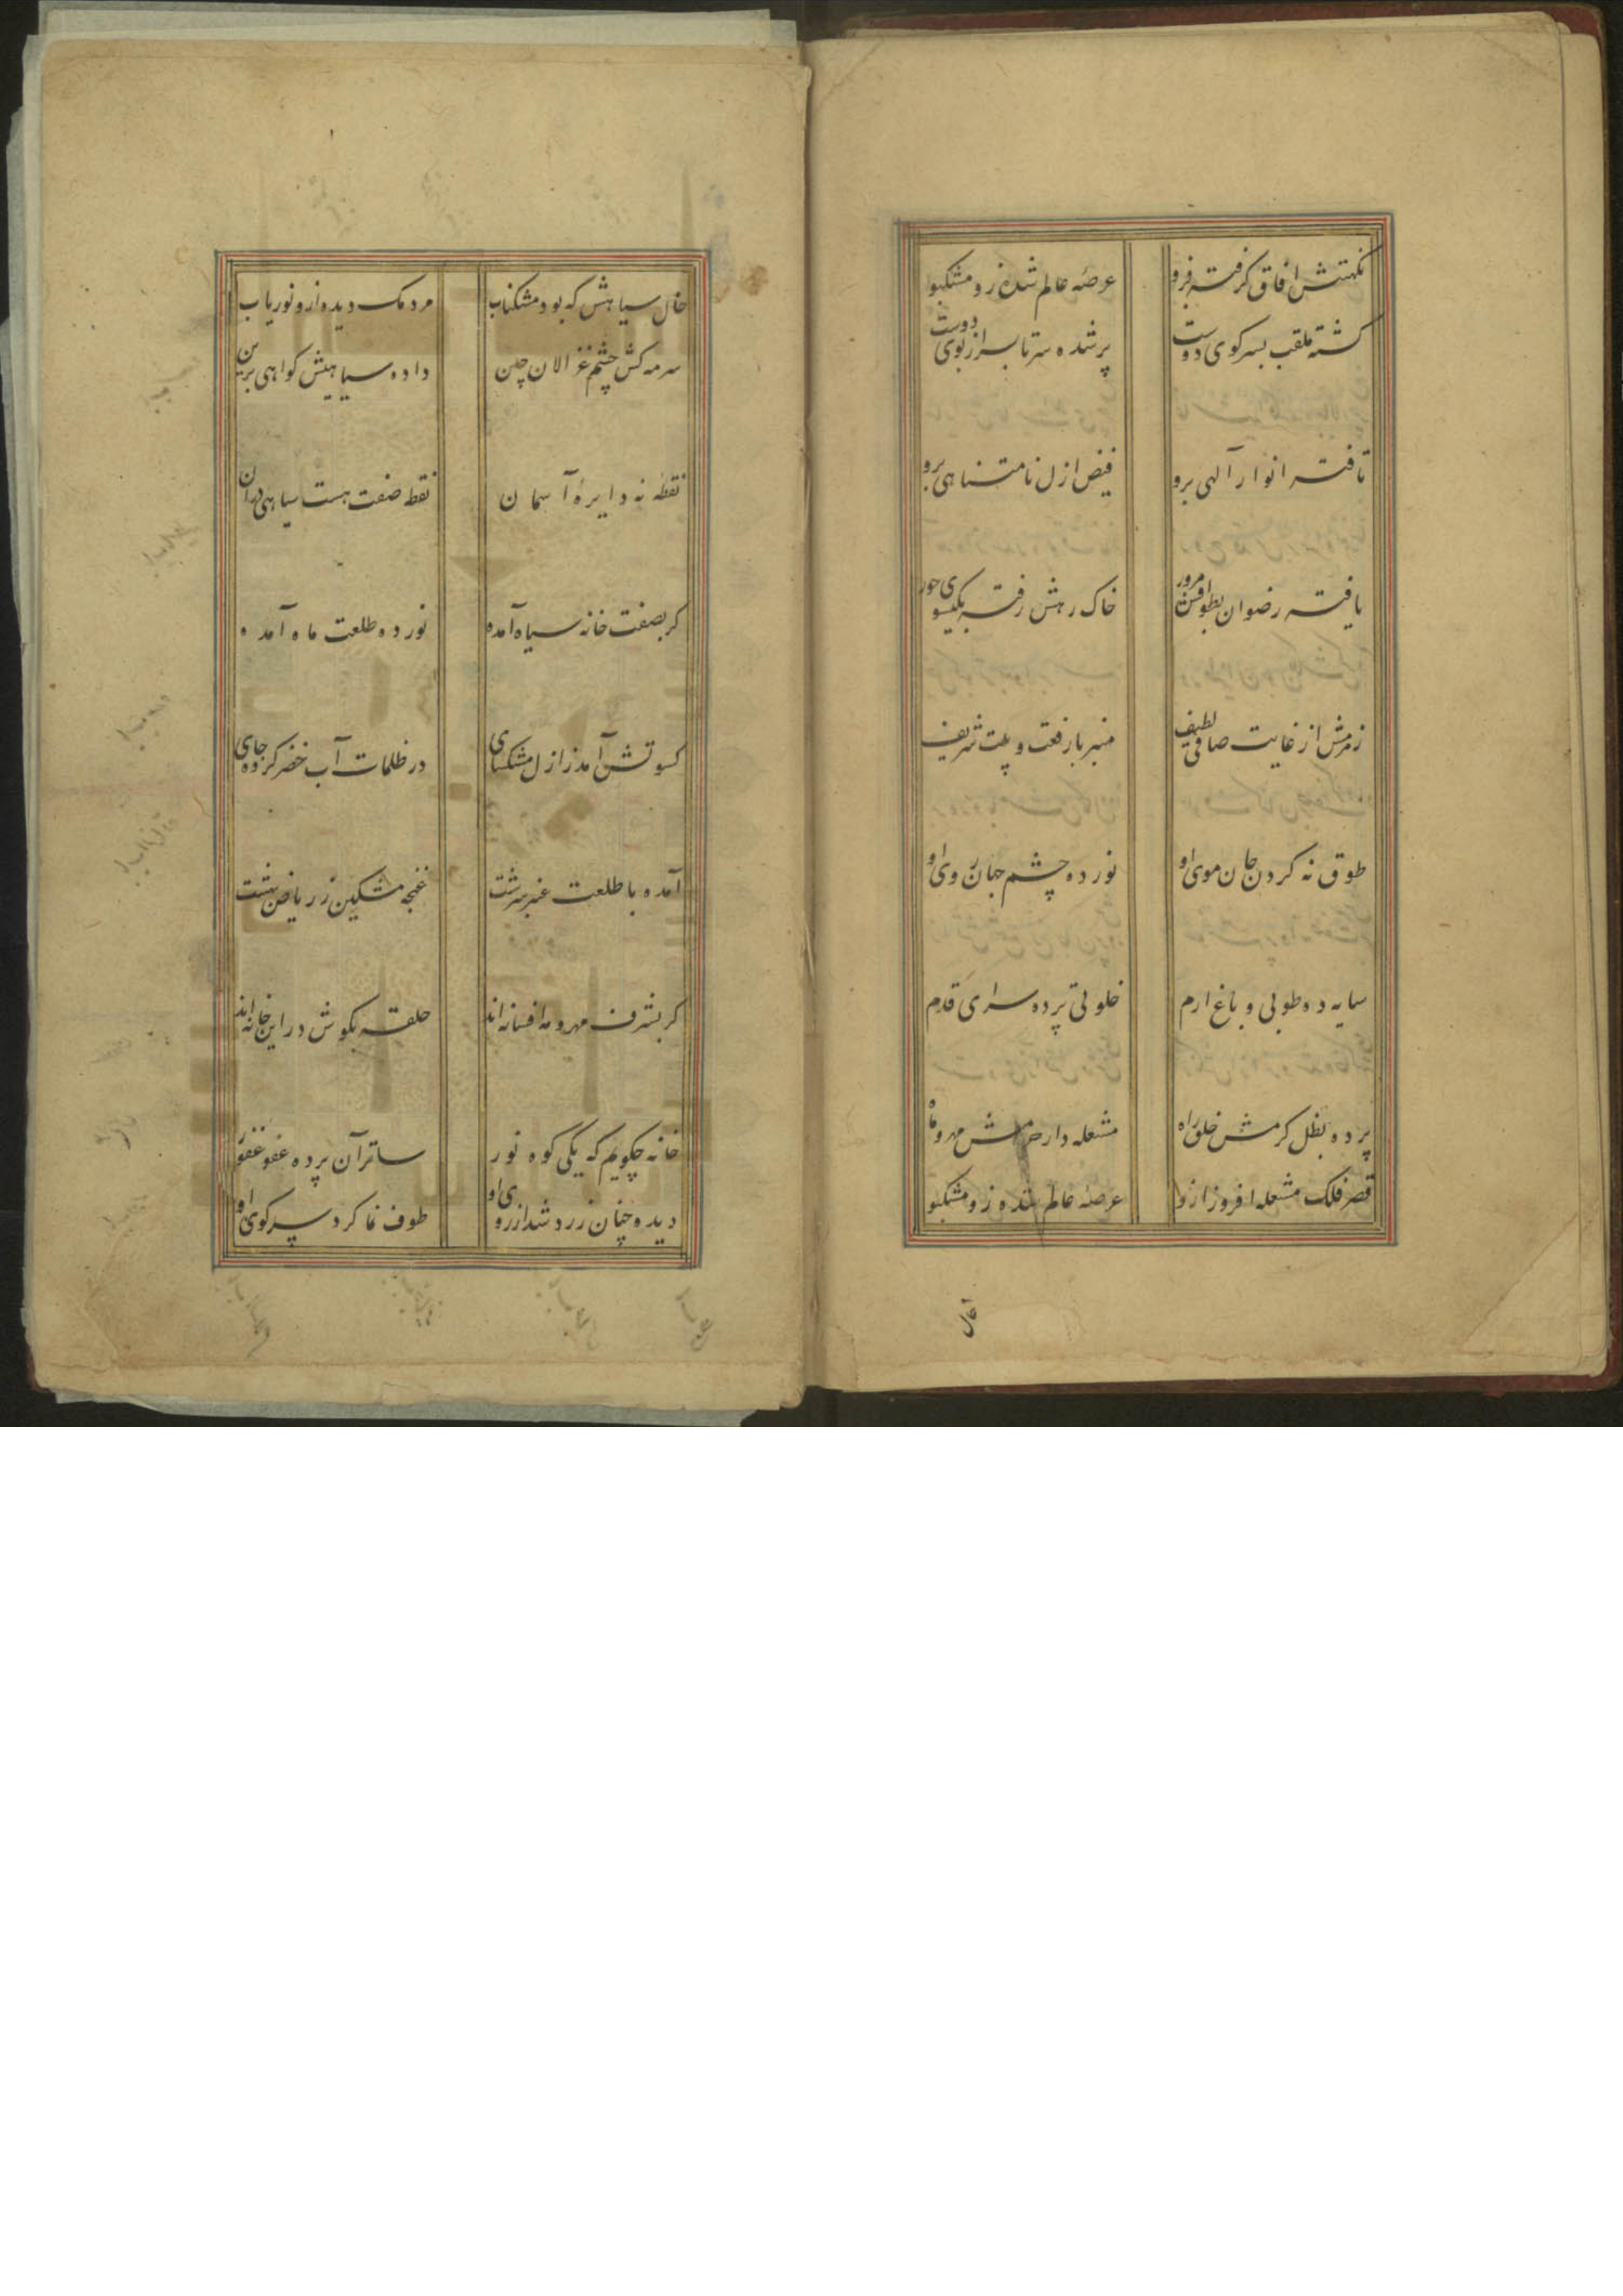 نکهتش آفاق گرفته فرو	عرصهٔ عالم شده زو مشکبو
کشته ملقب بسر کوی دوست	پر شده سر تا بسر از بوی دوست
تافته انوار آلهی برو	فیض ازل نامتناهی برو
یافته رضوان بطوافش مرور	خاک رهش رفته بکیسوی حور
زمزمش از غایت صافی لطیف	منبر با رفعت و پلت شریف
طوق نه کردن جان موی او	نور ده چشم جهان روی او
سایه ده طوبی و باغ ارم	خلوتی پرده سرای قدم
پرده بظل کرمش خلق راه	مشعله دار حرمش مهر و ماه
قصر فلک مشعله افروز ازو	عرصهٔ عالم شده زو مشکبو
خال سیاهش که بود مشکناب	مردمک دیده ازو نور یاب
سرمه کش چشم غزالان چین	داده سیاهیش کواهی برین
نقطهٔ نه دایرهٔ آسمان	نقطه صفت هست سیاهی دران
کر بصفت خانه سیاه آمده	نور ده طلعت ماه آمده
کسوتش آمد ز ازل مشکسای	در ظلمات آب خضر کرده جای
آمده با طلعت عنبر سرشت	غنچه مشکین ز ریاض بهشت
کر بشرف مهر و مه افسانه اند	حلقه بکوش در این خانه اند
خانه چکویم که یکی کوه نور	ساتر آن پرده عفو غفور
دیده چنان زرد شد از روی او	طوف نما کرد سر کوی او